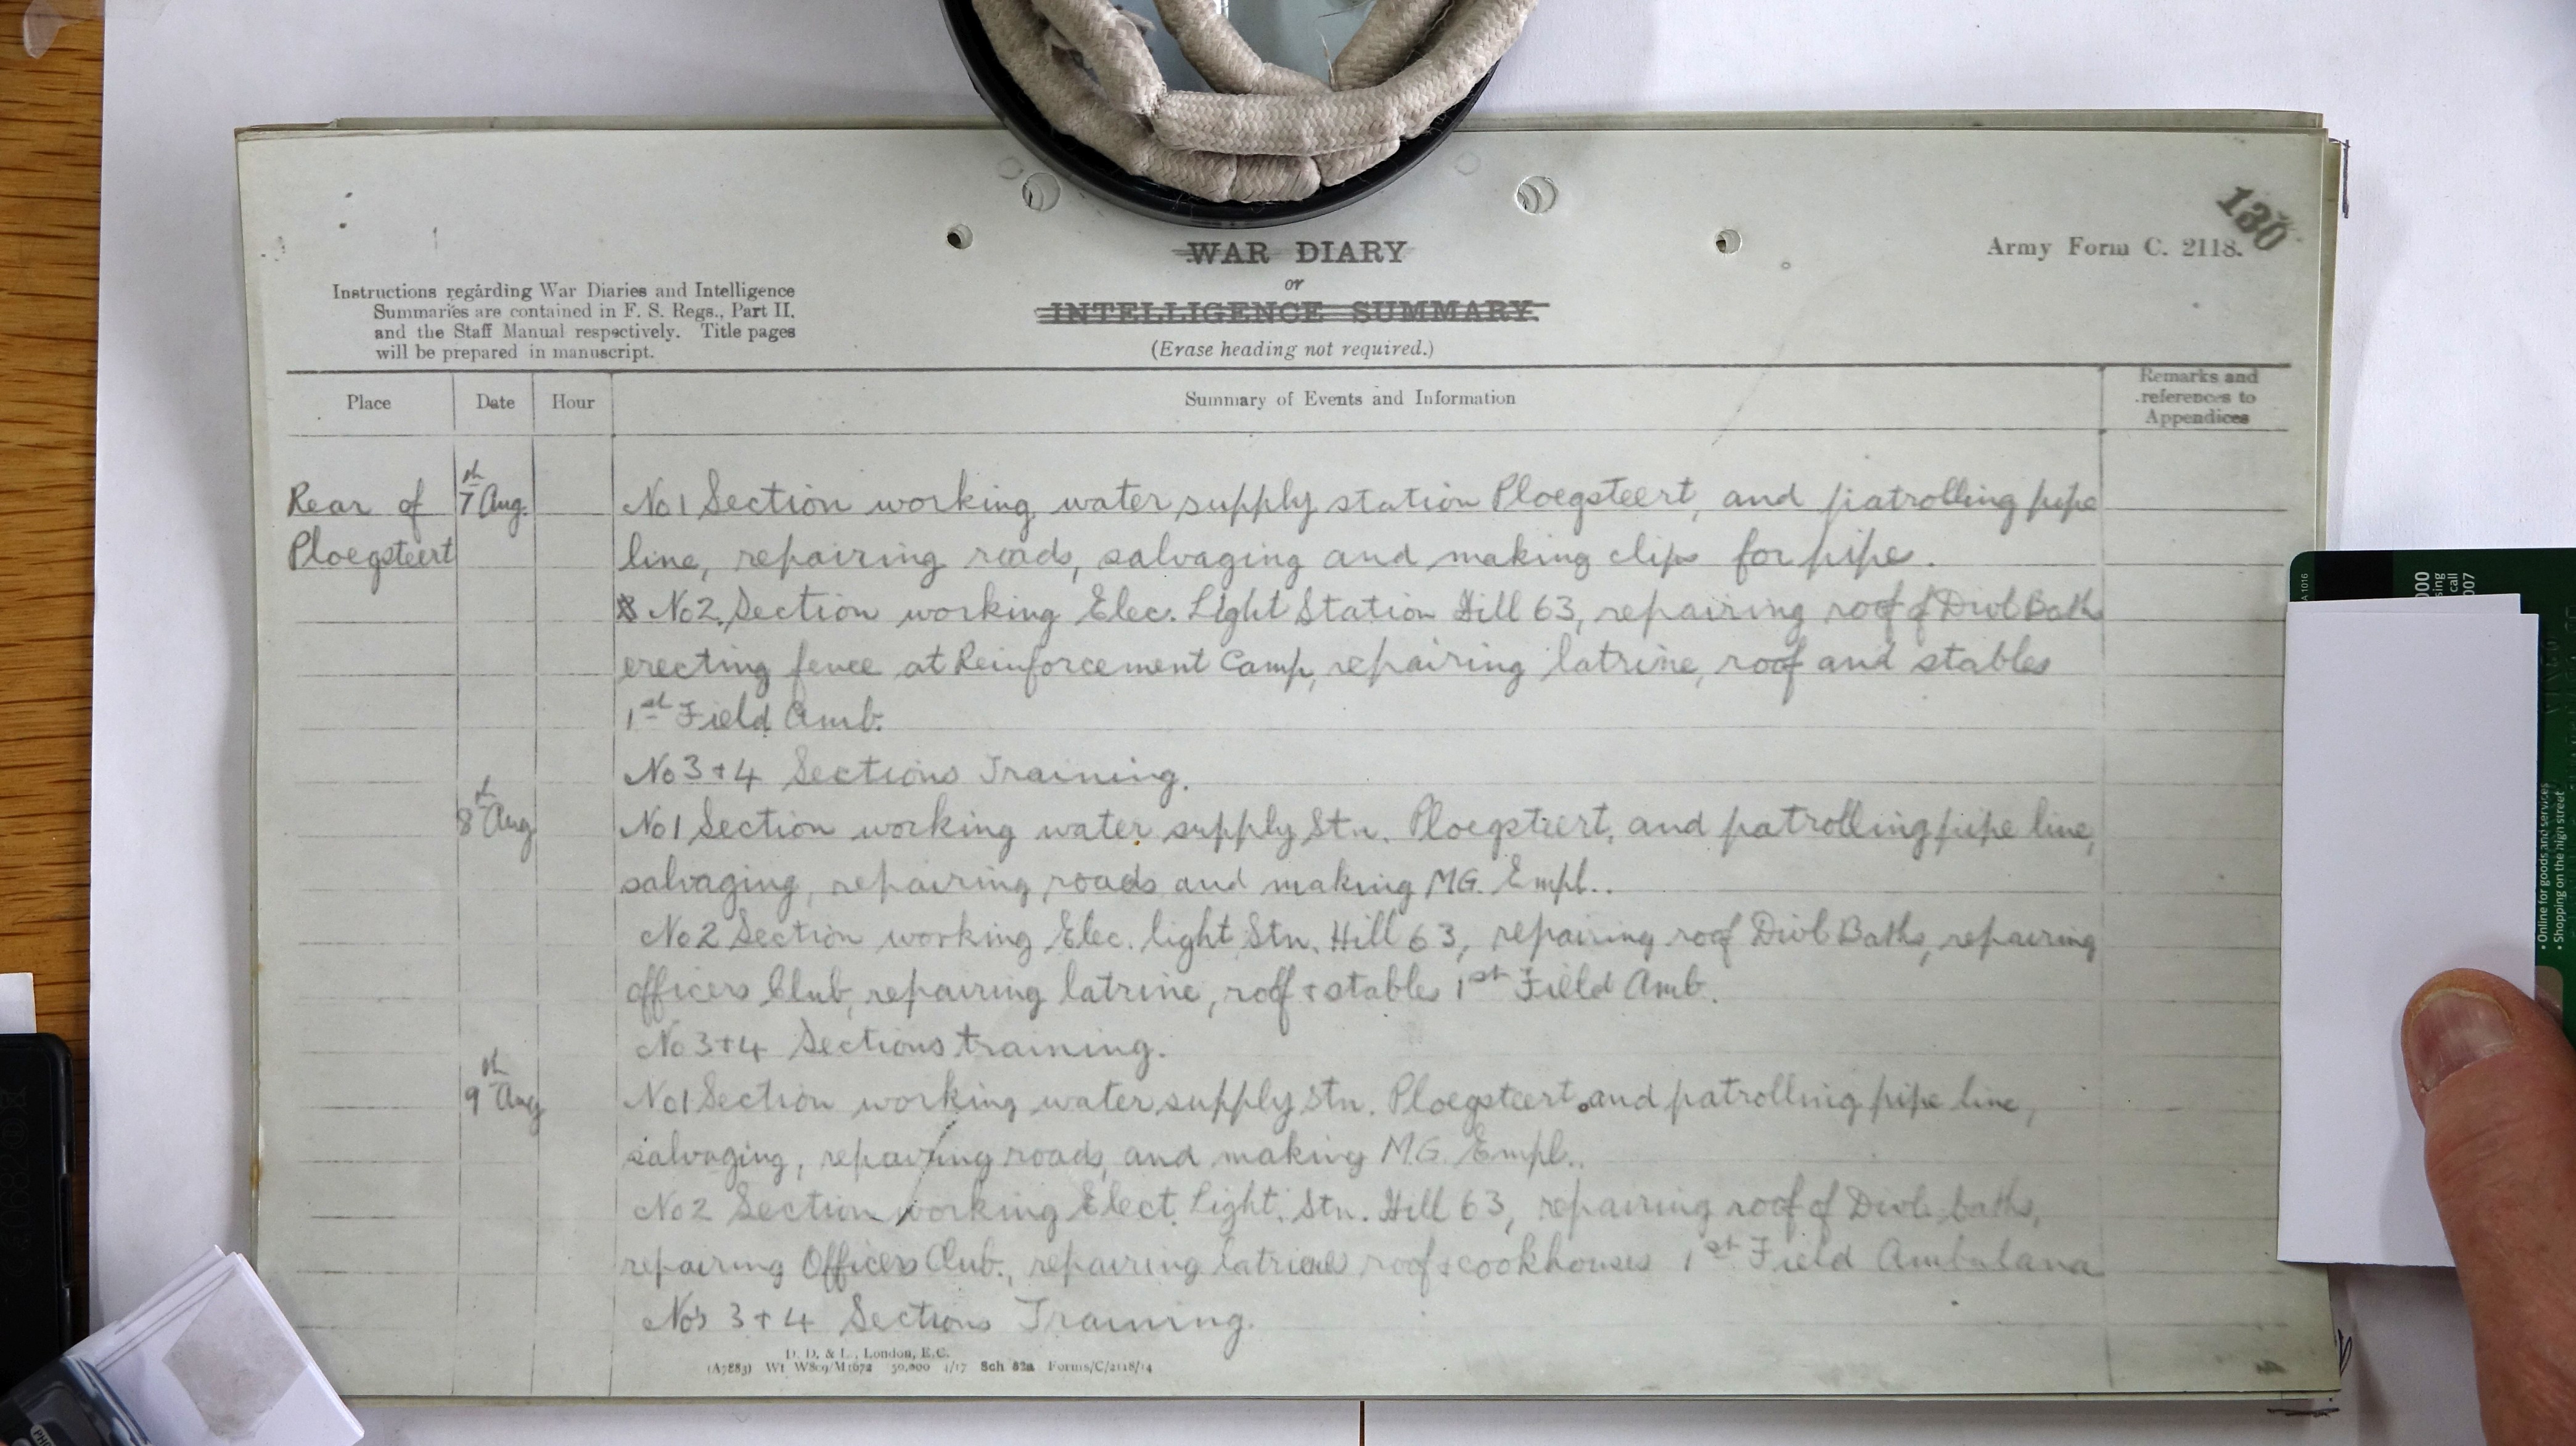 130
WAR DIARY
Army Form C. 2118.
or
INTELLIGENCE SUMMARY.
(Erase heading not required.)
Instructions regarding War Diaries and Intelligence
Summaries are contained in F. S. Regs., Part II.
and the Staff Manual respectively. Title pages
will be prepared in manuscript.
Place Date Hour Summary of Events and Information Remarks and
references to
Appendices
Rear of 7th Aug. No 1 Section working water supply station Ploegsteert, and patrolling pipe
Ploegsteert line, repairing roads, salvaging and making clips for pipe.
No 2. Section working Elec. Light Station Hill 63, repairing roof of Divl Baths
erecting fence at Reinforcement Camp, repairing latrine, roof and stables
1st Field Amb.
No 3 + 4 Sections Training.
8th Aug No 1 Section working water supply Stn. Ploegsteert, and patrolling pipe line,
salvaging, repairing roads and making MG. Empl..
No 2 Section working Elec. light Stn. Hill 63, repairing roof Divl Baths, repairing
officers Club, repairing latrine, roof + stables 1st Field Amb.
No 3 + 4 Sections training.
9th Aug No 1 Section working water supply Stn. Ploegsteert. and patrolling pipe line,
salvaging, repairing roads, and making M.G. Empl..
No 2 Section working Elect. Light. Stn. Hill 63, repairing roof of Divl. baths,
repairing Officers Club., repairing latrines roof + cookhouses 1st Field Ambulance
No's 3 + 4 Sections Training.
D. D. & L., London, E.C.
(A7883) Wt W809/M1672 50,000 1/17 Sch 82a Forms/C/2118/14
• Online for goods and services
• Shopping on the high street